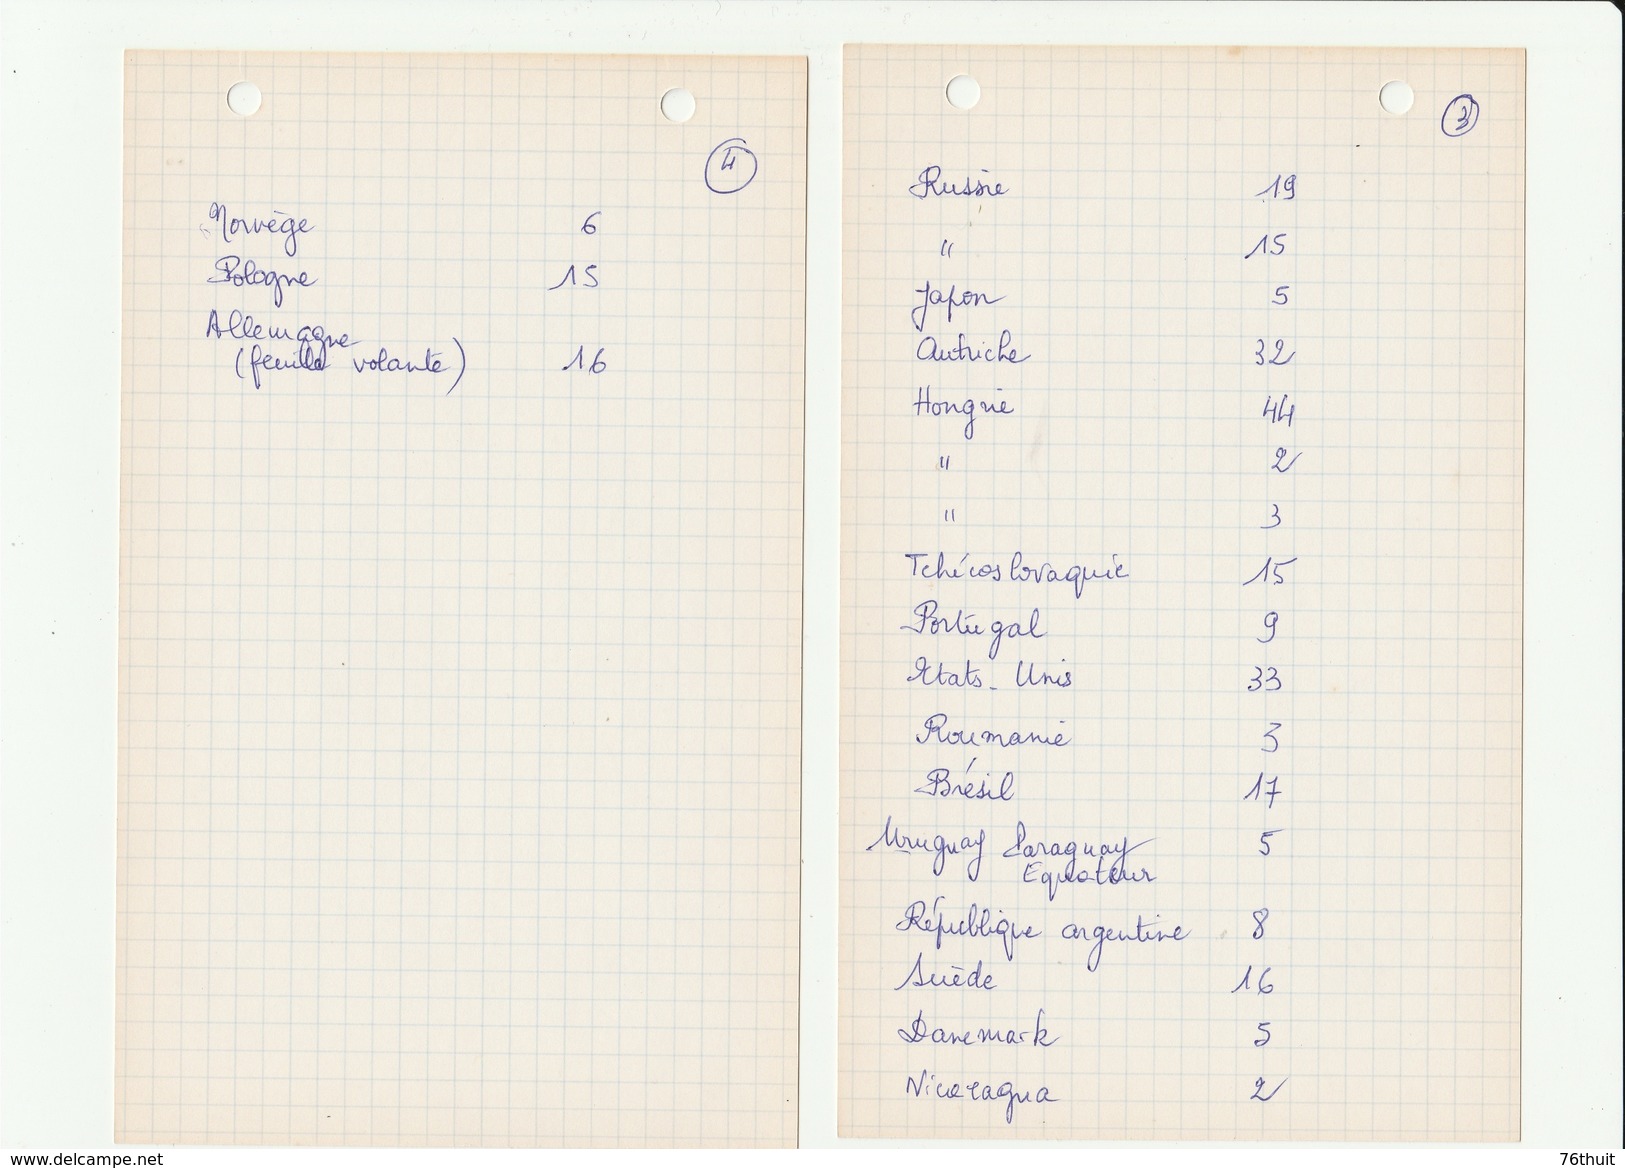 4
Norvège 6
Pologne 15
Allemagne
(feuille volante) 16
3
Russie 19
" 15
Japon 5
Autriche 32
Hongrie 44
" 2
" 3
Tchécoslovaquie 15
Portugal 9
Etats-Unis 33
Roumanie 3
Brésil 17
Uruguay Paraguay 5
Equateur
République argentine 8
Suède 16
Danemark 5
Nicaragua 2
delcampe.net
76thuit